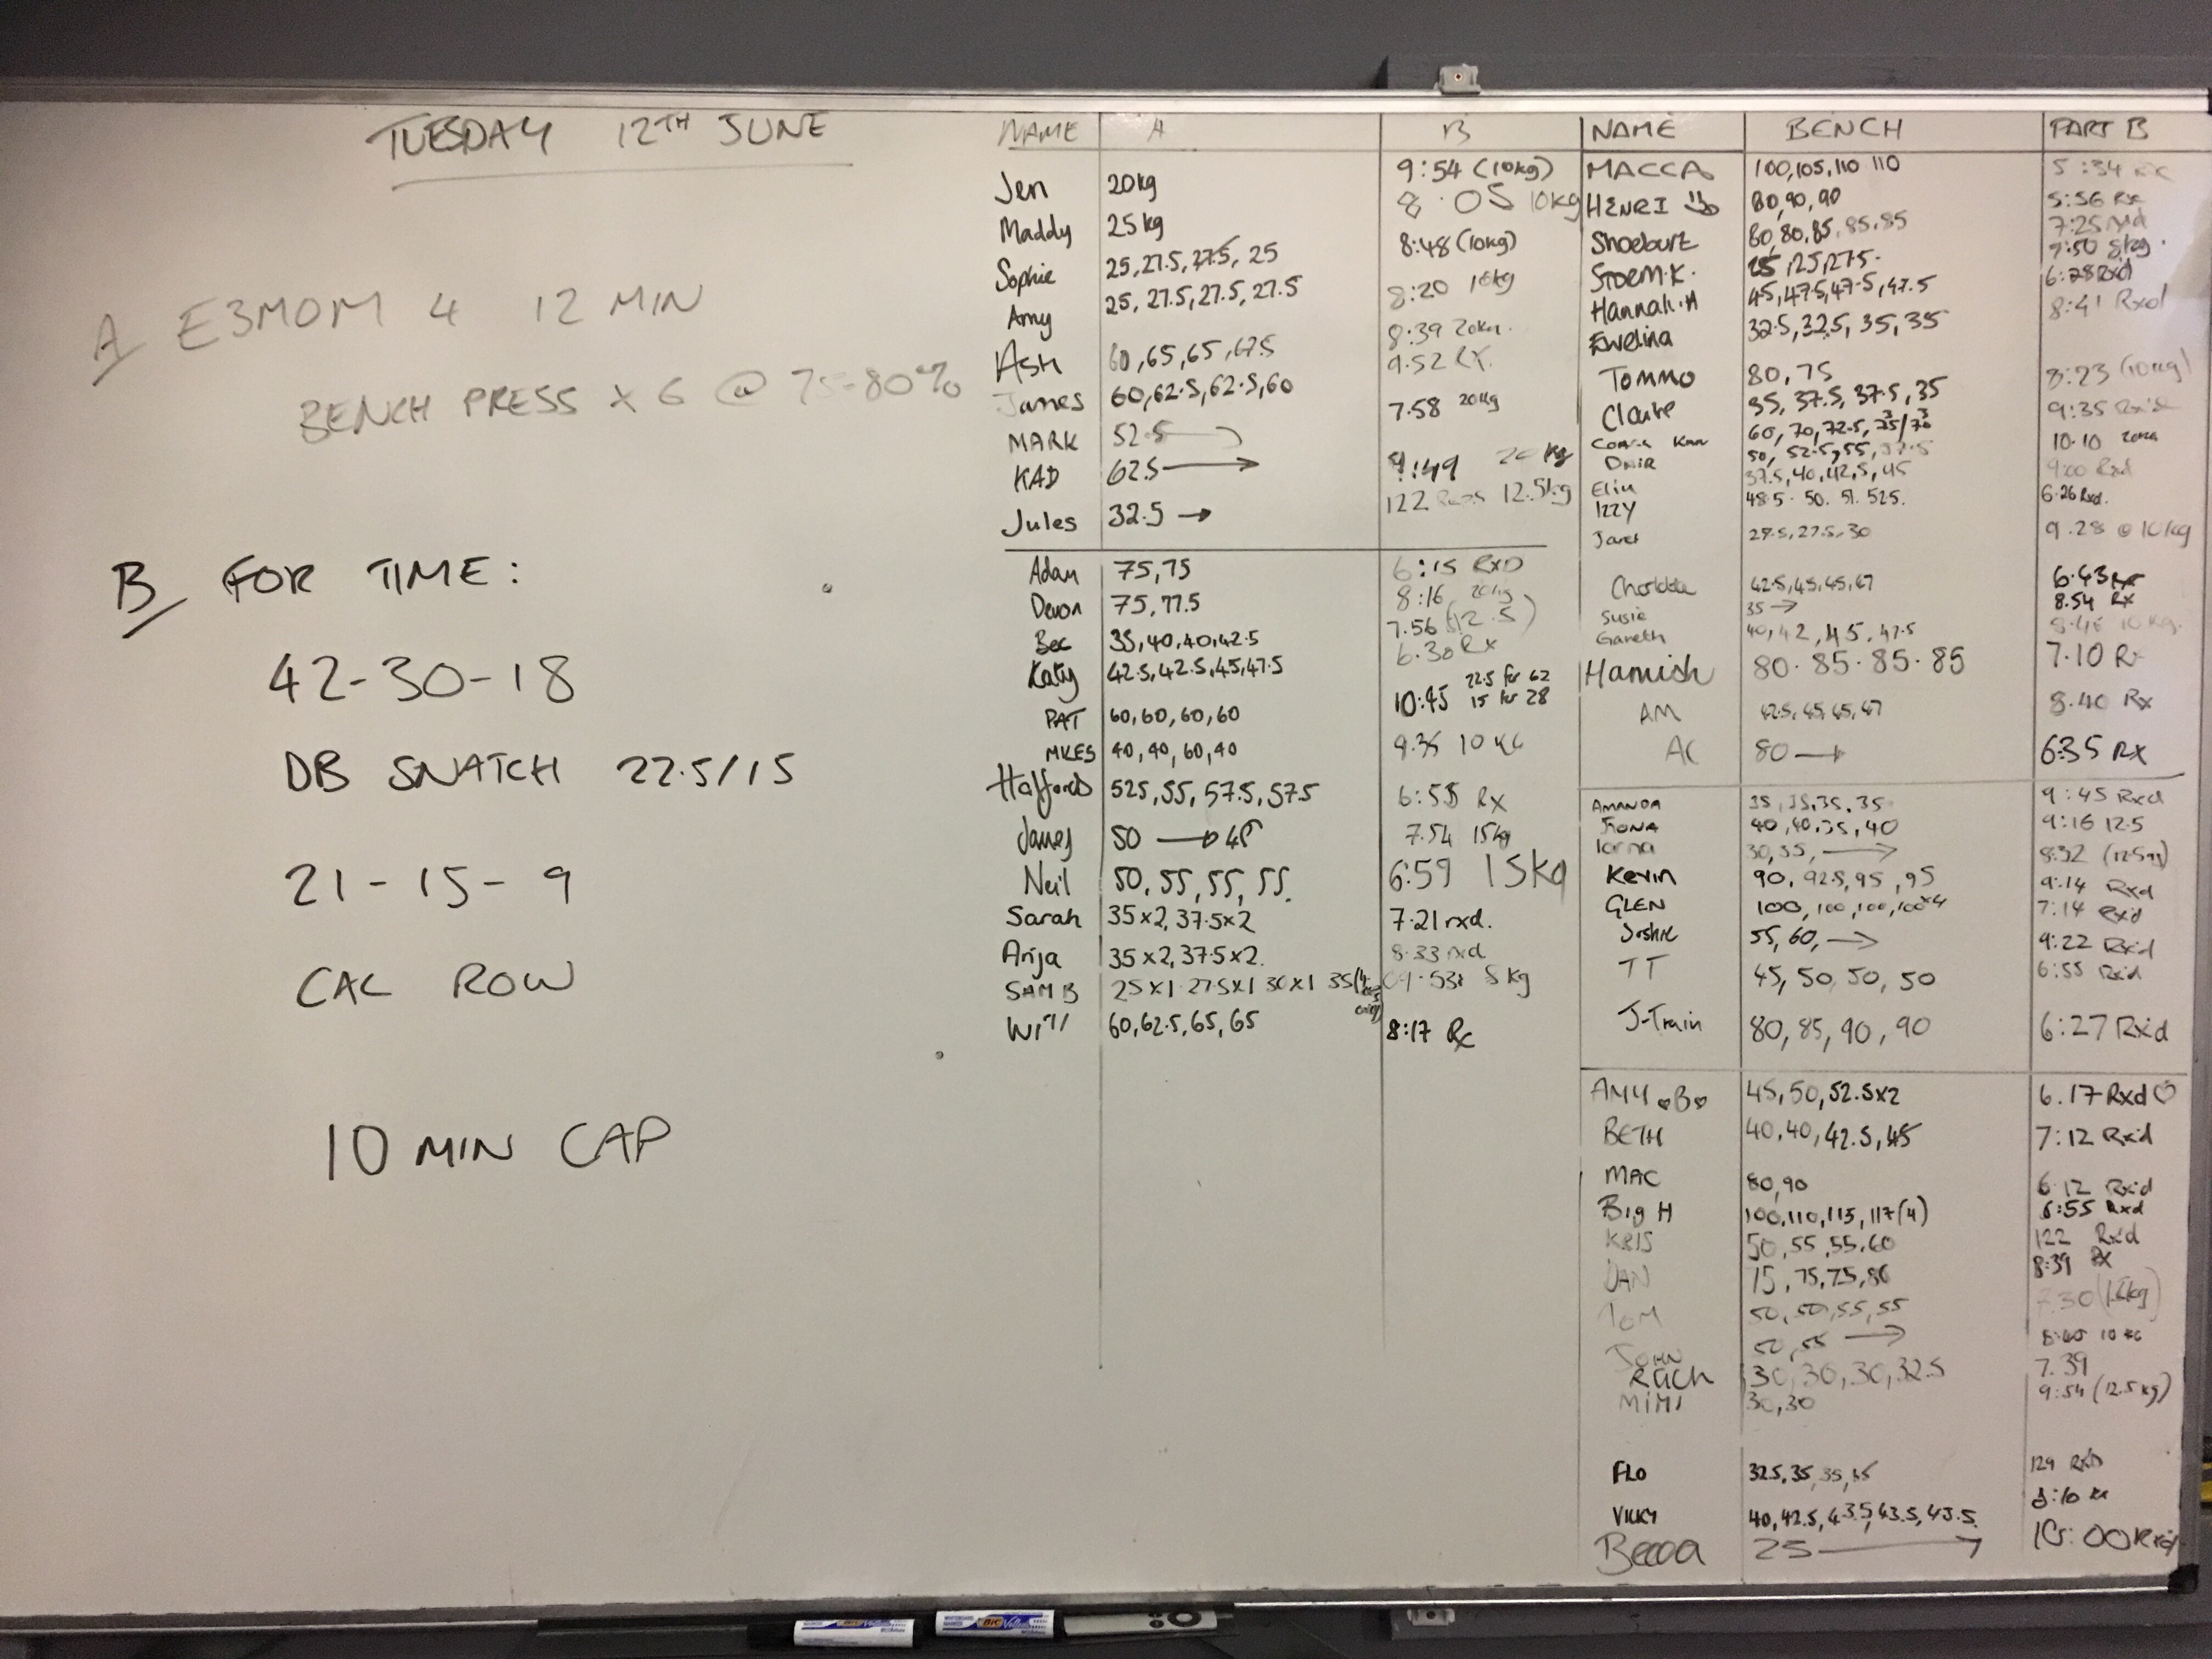 TUESDAY 12TH JUNE
A E3MOM 4 12 MIN
BENCH PRESS x 6 @ 75-80%
B FOR TIME:
42-30-18
DB SNATCH 22.5/15
21-15-9
CAL ROW
10 MIN CAP
NAME A B
Jen 20kg 9:54 (10kg)
Maddy 25kg 8:05 10kg
Sophie 25, 27.5, 27.5, 25 8:48 (10kg)
Amy 25, 27.5, 27.5, 27.5 8:20 10kg
Ash 60, 65, 65, 67.5 8:39 20kg.
James 60, 62.5, 62.5, 60 9.52 RX.
MARK 52.5 7.58 20kg
KAD 62.5 → 9:49 20kg
Jules 32.5 → 122 12.5kg
Adam 75, 75 6:15 RXD
Devon 75, 77.5 8:16 20kg
Bec 35, 40, 40, 42.5 7.56 (12.5)
Katy 42.5, 42.5, 45, 47.5 6.30 Rx
PAT 60, 60, 60, 60 10:45 22.5 for 62
15 for 28
MKES 40, 40, 60, 40 9.35 10 KG
Hafford 525, 55, 57.5, 57.5 6:55 Rx
James 50 → 45 7.54 15kg
Neil 50, 55, 55, 55. 6:59 15kg
Sarah 35x2, 37.5x2 7.21 rxd.
Anja 35x2, 37.5x2. 8.33 rxd
SAM B 25x1 27.5x1 30x1 35 5kg
Will 60, 62.5, 65, 65 8:17 Rx
NAME BENCH PART B
MACCA 100, 105, 110 110 5:34 RX
HENRI 80, 90, 90 5:56 Rx
Shoebart 80, 80, 85, 85, 85 7:25 rxd
Stoem.K. 25, 25, 27.5. 7:50 8kg.
Hannah.A 45, 47.5, 47.5, 47.5 6:28 Rxd
Ewelina 32.5, 32.5, 35, 35 8:41 Rxd
TOMMO 80, 75 8:23 (10kg)
Claire 35, 37.5, 37.5, 35 9:35 Rx'd
60, 70, 72.5, 10.10 20kg
50, 52.5, 55, 57.5 9:00 Rxd
Elin 37.5, 40, 42.5, 45 6.26 Rxd.
IZZY 48.5. 50. 51. 525.
Janet 27.5, 27.5, 30 9.28 @ 10kg
42.5, 45, 45, 47 6.43 Rx
Susie 35 → 8.54 Rx
Gareth 40, 42, 45, 47.5 8:46 10kg.
Hamish 80. 85. 85. 85 7.10 Rx
AM 42.5, 45, 45, 47 8.40 Rx
AC 80 → 6:35 Rx
AMANDA 35, 35, 35, 35 9:45 Rxd
FIONA 40, 40, 35, 40 9:16 12.5
lorna 30, 35, → 8:32 (12.5kg)
Kevin 90, 92.5, 95, 95 9:14 Rxd
GLEN 100, 100, 100, 100x4 7:14 Rx'd
Joshie 55, 60, → 9:22 Rx'd
TT 45, 50, 50, 50 6:55 Rx'd
J-Train 80, 85, 90, 90 6:27 Rx'd
AMY ♥B♥ 45, 50, 52.5x2 6.17 Rxd ♡
BETH 40, 40, 42.5, 45 7:12 Rx'd
MAC 80, 90 6:12 Rx'd
Big H 100, 110, 115, 117(4) 6:55 Rxd
KRIS 50, 55, 55, 60 122 Rx'd
DAN 75, 75, 75, 80 8:39 RX
TOM 50, 50, 55, 55 7.30 (15kg)
JOHN 50, 55 → 8:40 10 KG
RACH 30, 30, 30, 32.5 7.39
MIMI 30, 30 9:54 (12.5kg)
FLO 32.5, 35, 35, 35 129 RXD
VICKY 40, 42.5, 43.5, 43.5, 43.5. 8:10 Rx
Becca 25 → 10:00 Rxd
BIC Velleda
BIC Velleda